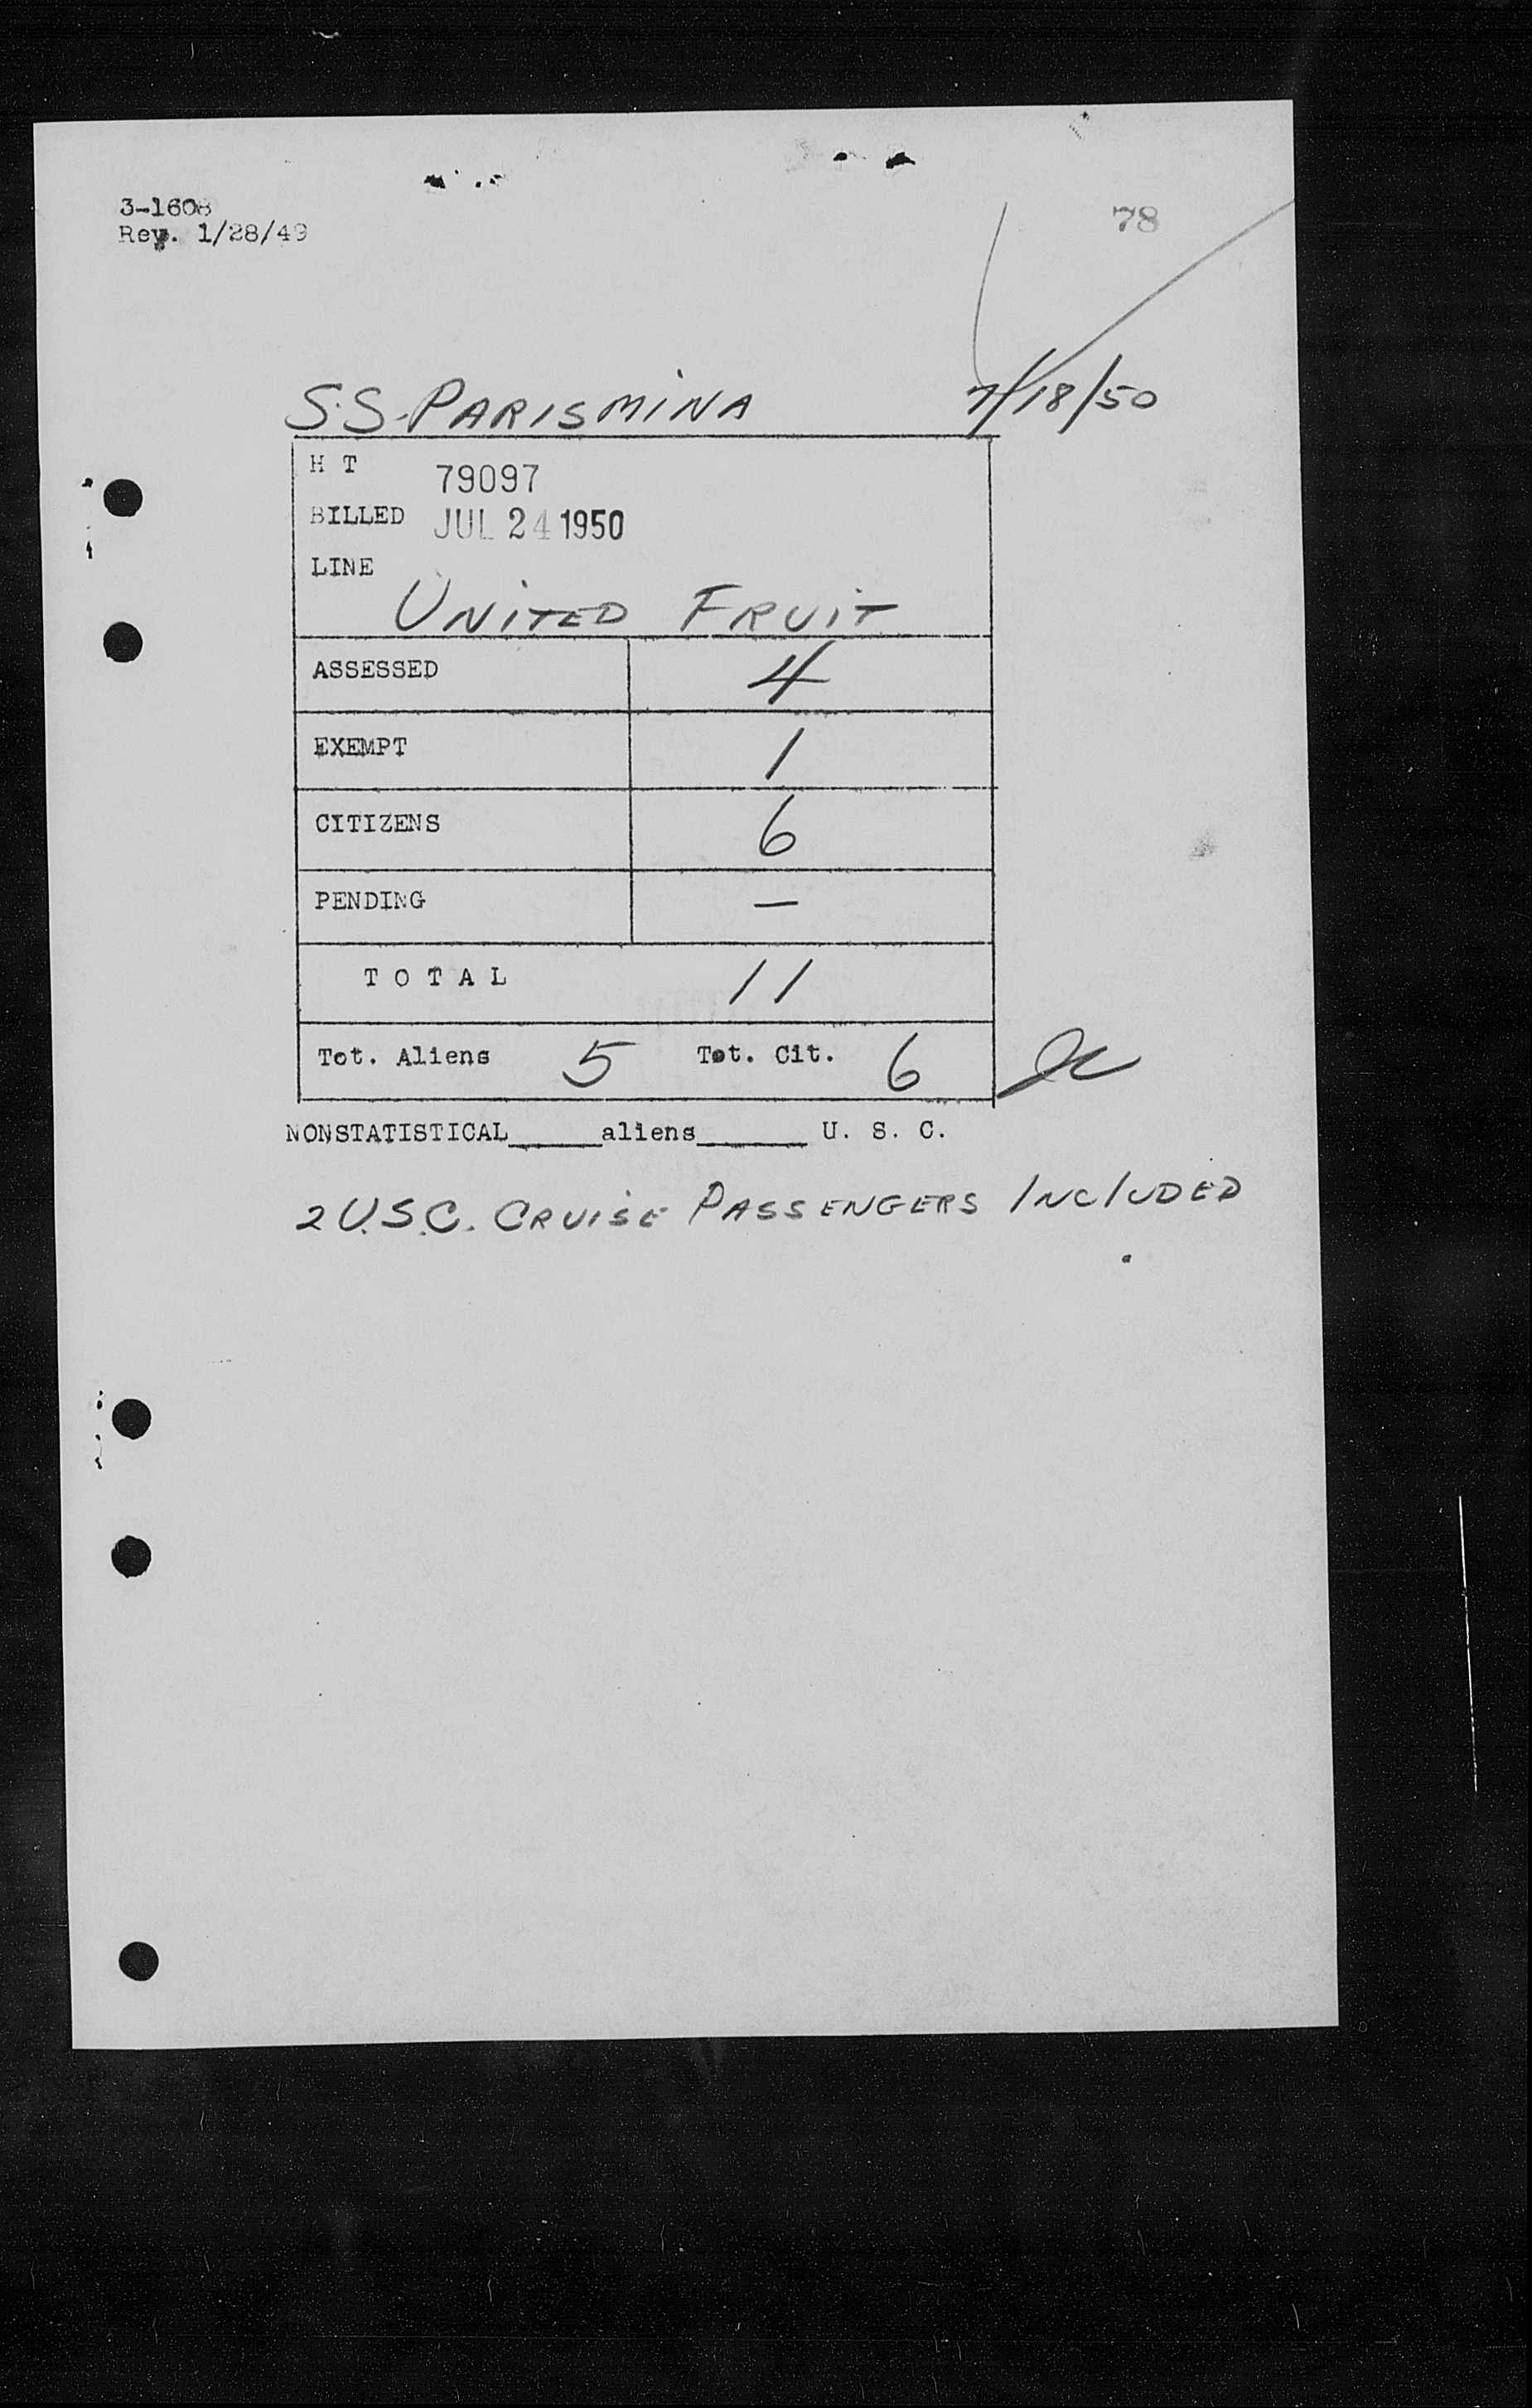 3-1608
Rev. 1/28/49
78
S.S. PARISMINA 7/18/50
H T 79097
BILLED JUL 24 1950
LINE
UNITED FRUIT
ASSESSED 4
EXEMPT 1
CITIZENS 6
PENDING —
T O T A L 11
Tot. Aliens 5 Tot. Cit. 6
NONSTATISTICAL_____aliens______ U. S. C.
2 U.S.C. CRUISE PASSENGERS INCLUDED